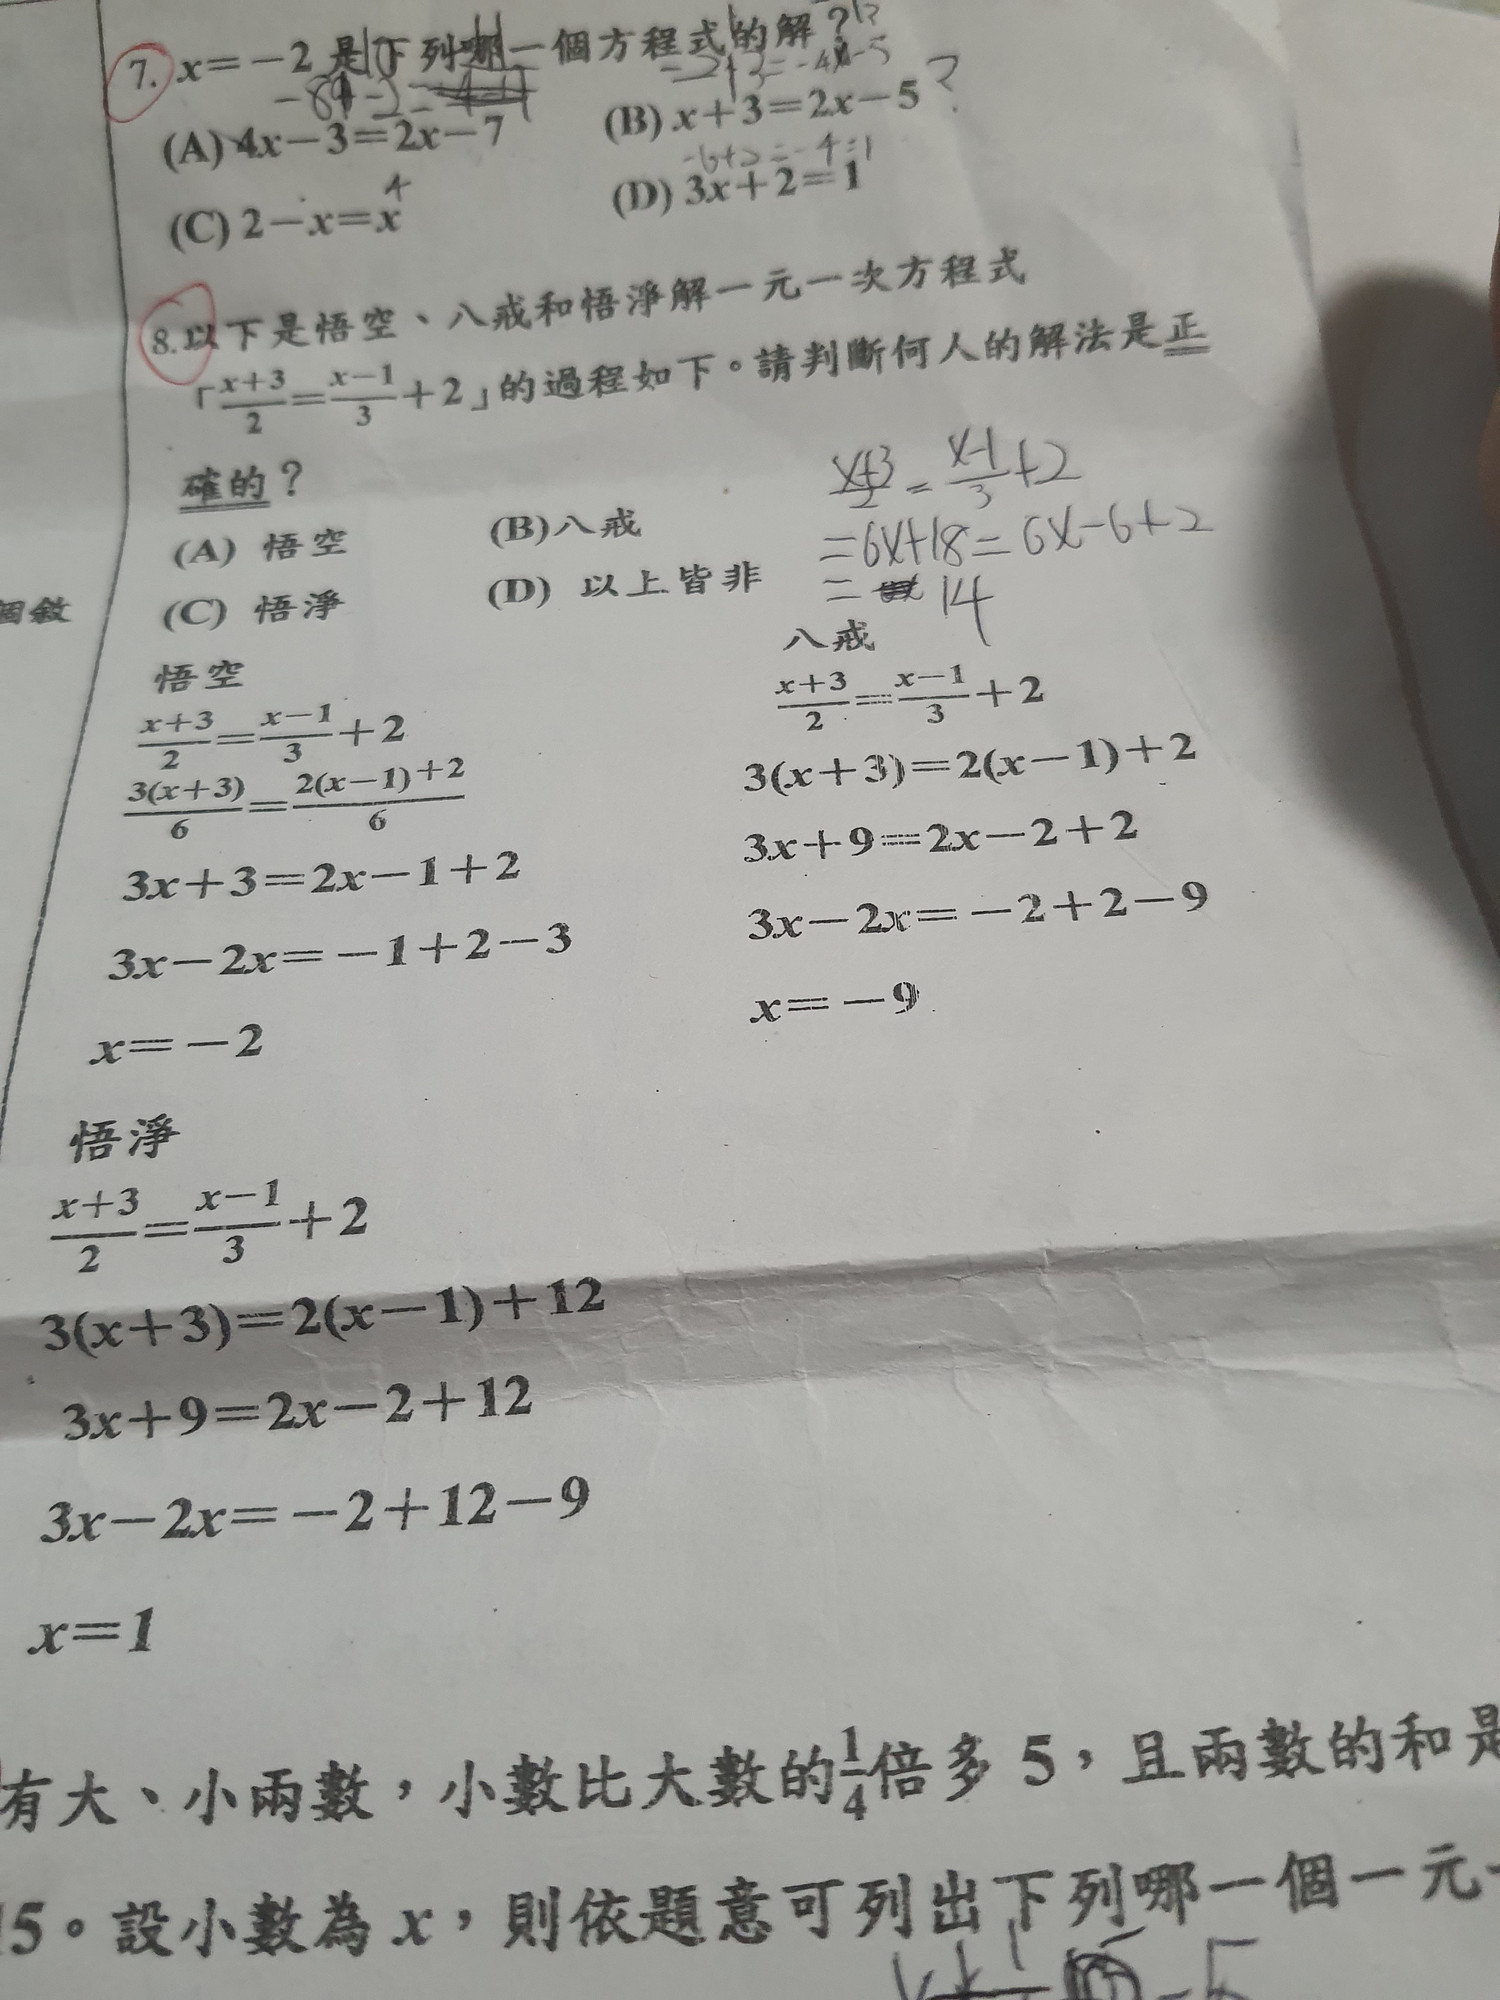 7. x＝－2 是下列哪一個方程式的解？
－2＋3＝－4－5
(A) 4x－3＝2x－7
(B) x＋3＝2x－5 ?
－6＋2＝－4＝1
4
(C) 2－x＝x
(D) 3x＋2＝1
8. 以下是悟空、八戒和悟淨解一元一次方程式
「(x＋3)/2＝(x－1)/3＋2」的過程如下。請判斷何人的解法是正
確的？
(x+3)/2 = (x-1)/3 +2
=6x+18=6x-6+2
= 14
(A) 悟空
(B)八戒
(C) 悟淨
(D) 以上皆非
悟空
(x＋3)/2＝(x－1)/3＋2
3(x＋3)/6＝(2(x－1)＋2)/6
3x＋3＝2x－1＋2
3x－2x＝－1＋2－3
x＝－2
八戒
(x＋3)/2＝(x－1)/3＋2
3(x＋3)＝2(x－1)＋2
3x＋9＝2x－2＋2
3x－2x＝－2＋2－9
x＝－9
悟淨
(x＋3)/2＝(x－1)/3＋2
3(x＋3)＝2(x－1)＋12
3x＋9＝2x－2＋12
3x－2x＝－2＋12－9
x＝1
個敘
有大、小兩數，小數比大數的1/4倍多 5，且兩數的和是
15。設小數為 x，則依題意可列出下列哪一個一元